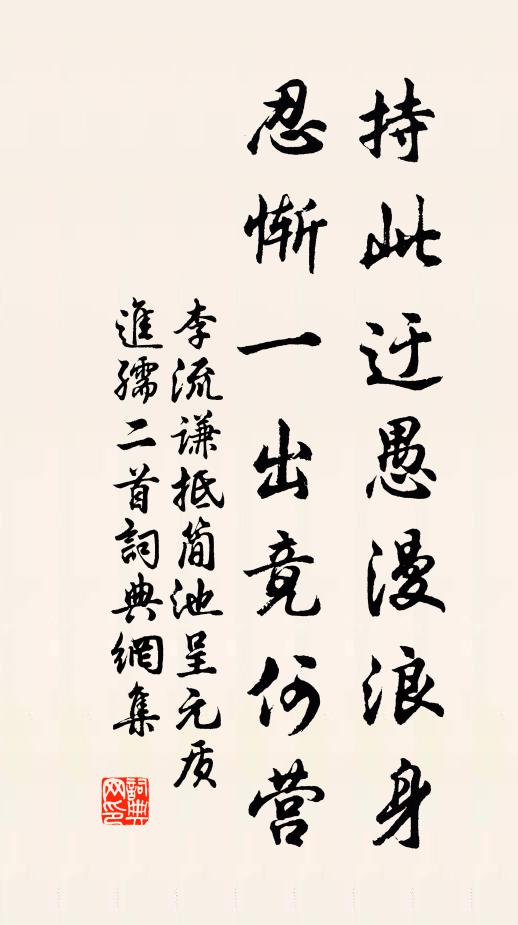 持此迂愚漫浪身
忍惭一出竟何营
李流谦抵简池呈元质
進孺二首詞典網集
詞典网印